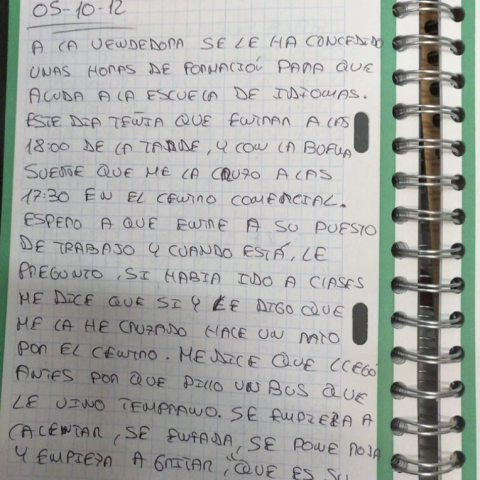 05-10-12
A LA VENDEDORA SE LE HA CONCEDIDO
UNAS HORAS DE FORMACIÓ PARA QUE
ACUDA A LA ESCUELA DE IDIOMAS.
ESTE DIA TENIA QUE ENTRAR A LAS
18:00 DE LA TARDE, Y CON LA BUENA
SUERTE QUE ME LA CRUZO A LAS
17:30 EN EL CENTRO COMERCIAL.
ESPERO A QUE ENTRE A SU PUESTO
DE TRABAJO Y CUANDO ESTÁ, LE
PREGUNTO, SI HABIA IDO A CLASES
ME DICE QUE SI Y LE DIGO QUE
ME LA HE CRUZADO HACE UN RATO
POR EL CENTRO. ME DICE QUE LLEGÓ
ANTES POR QUE PILLO UN BUS QUE
LE VINO TEMPRANO. SE EMPIEZA A
CALENTAR, SE ENFADA, SE PONE ROJA
Y EMPIEZA A GRITAR, "QUE ES SU